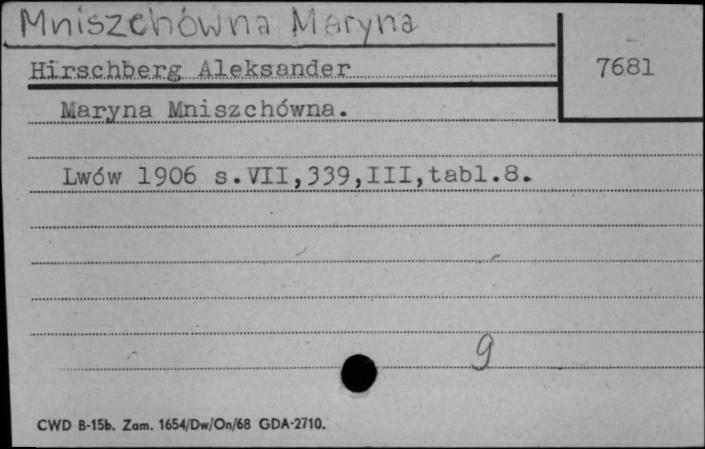 Mniszchówna Maryna
Hirschberg Aleksander
7681
Maryna Mniszchówna.
Lwów 1906 s.VII,339,III,tabl.8.
9
CWD B-15b. Zam. 1654/Dw/On/68 GDA-2710.